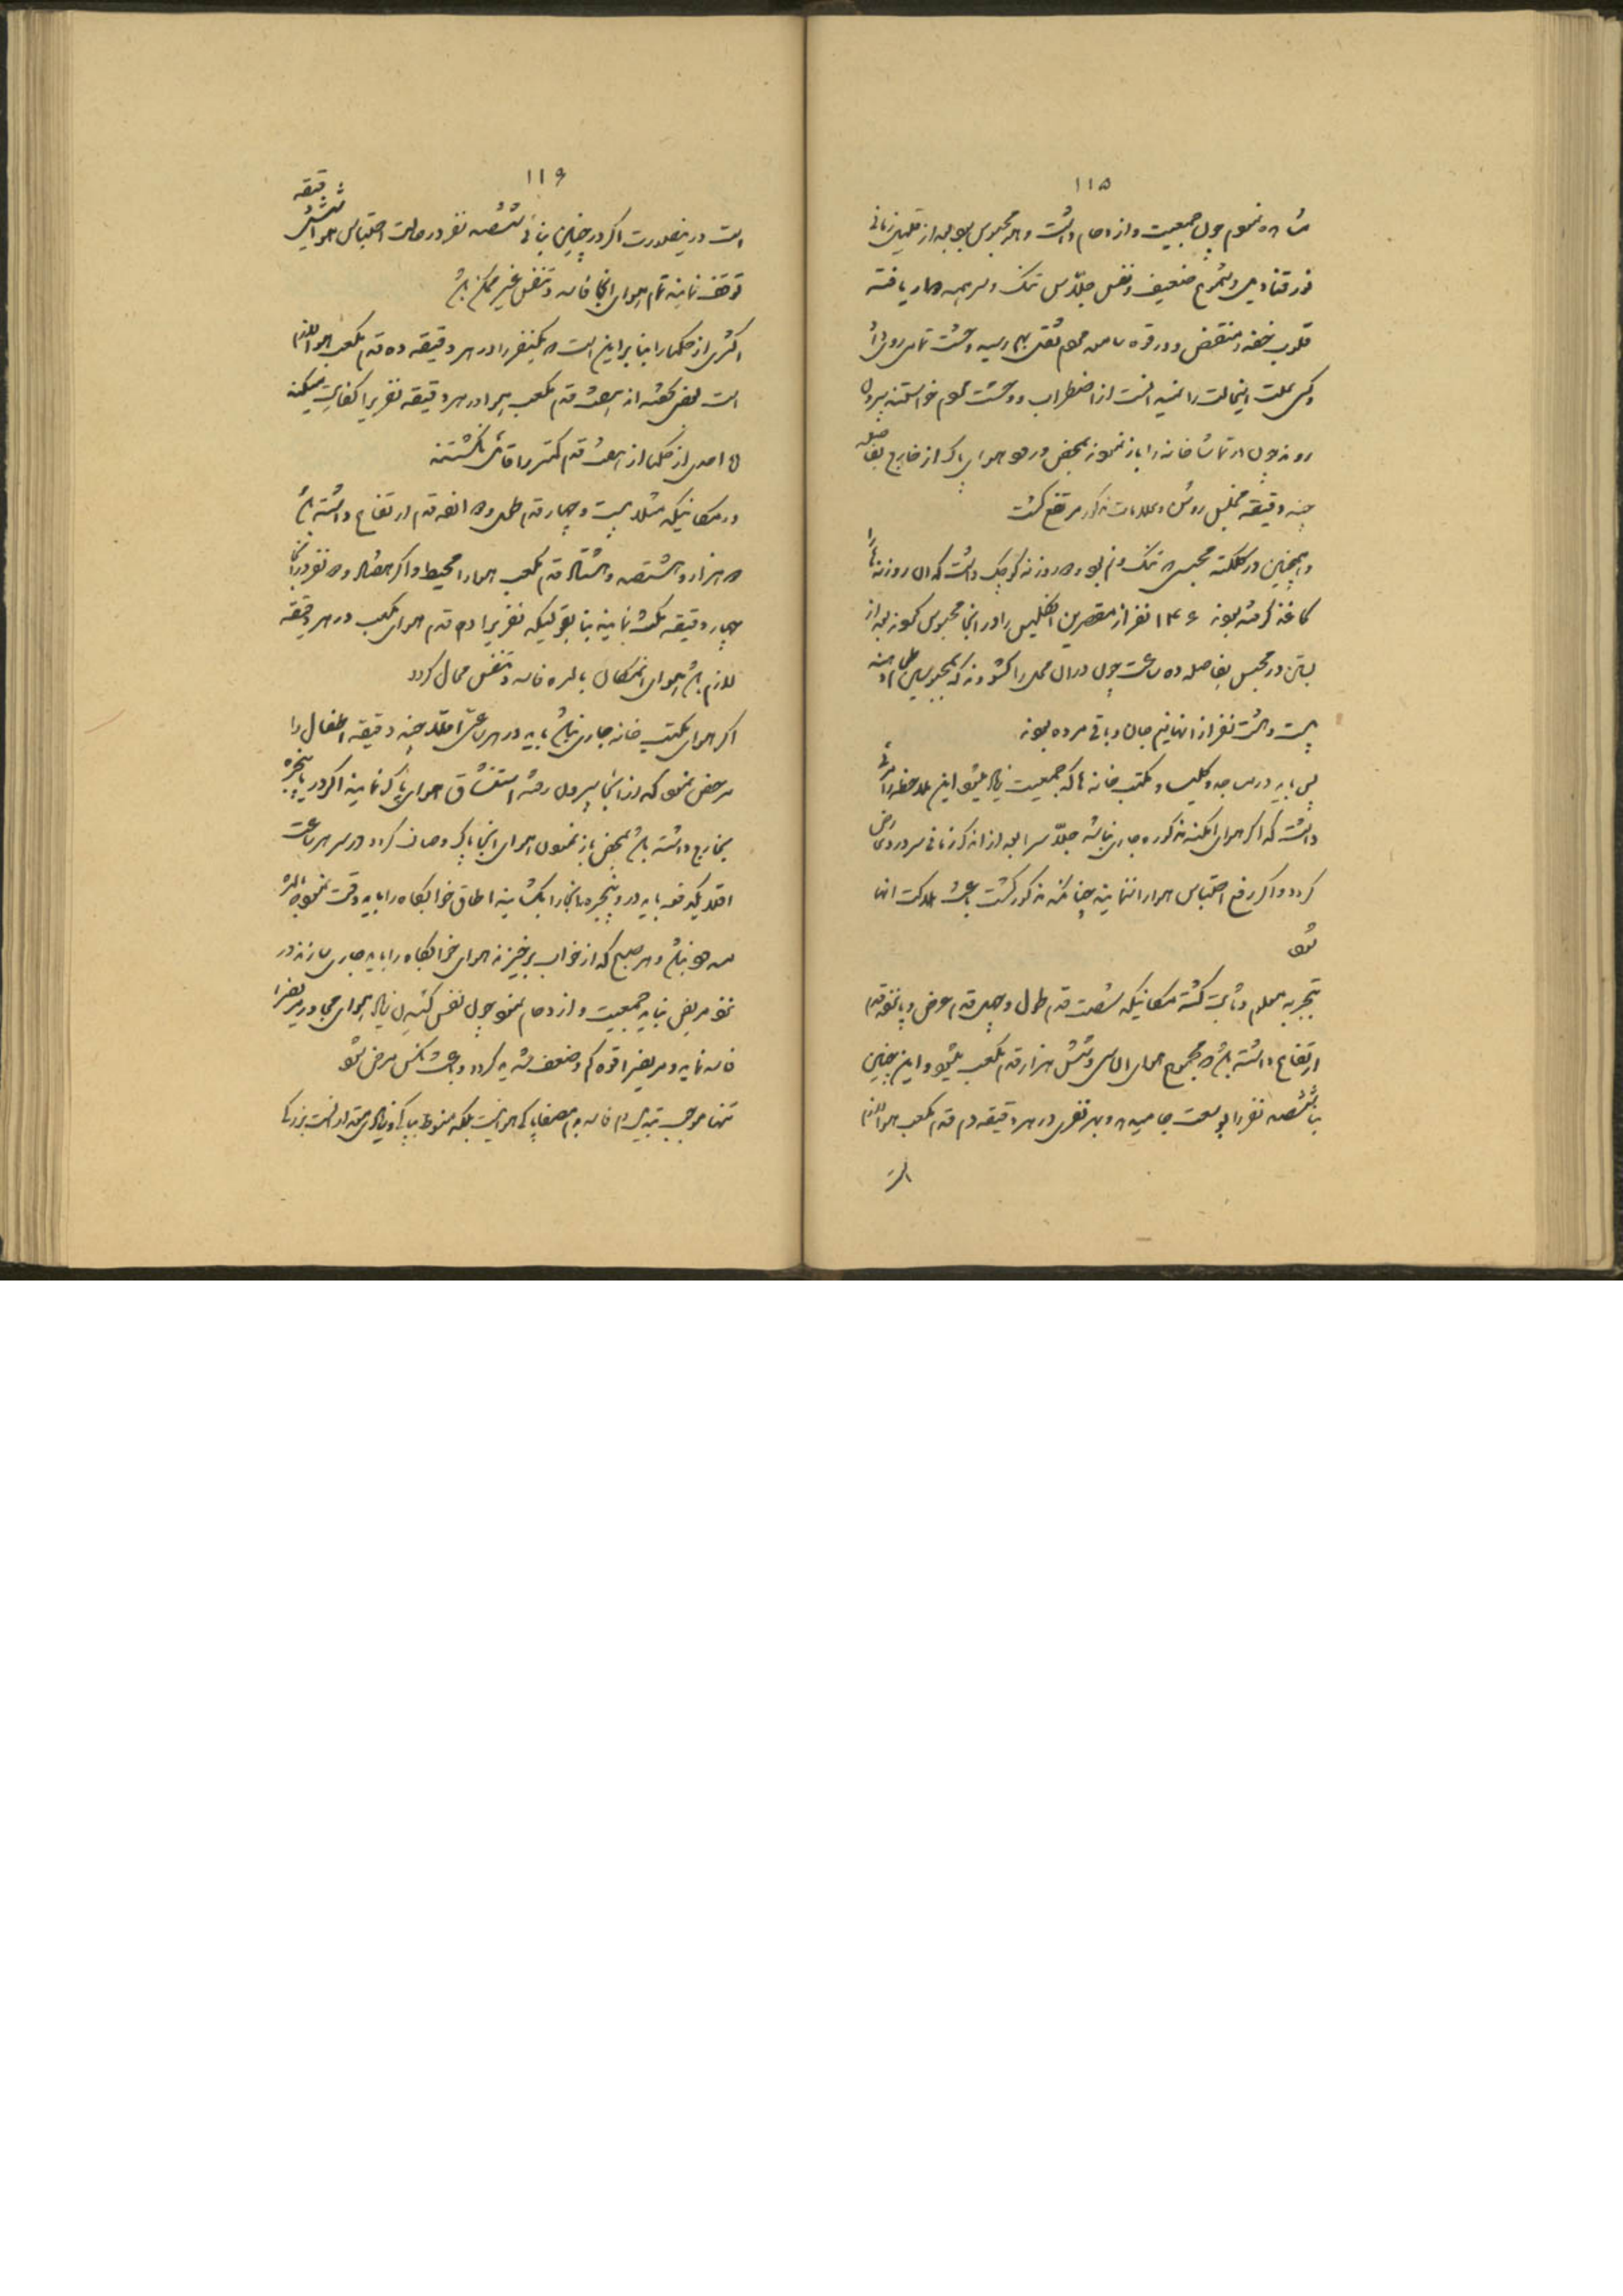 ۱۱۵
مشاهده نمودم چون جمعیت و ازدحام داشت و هوا محبوس بود بعد از قلیل زمانی
نور قنادیل و شموع ضعیف و نفس جلاس تنک و سر همه دوار یافته
قلوب خفه و منقبض و در قوه سامعه هم ثقلی بهم رسید وحشت تمام روی داد
و کسی علت اینحالت را نمیدانست از اضطراب و وحشت مردم خواستند بیرون
روند چون در تماشاخانه را باز نمودند بمحض ورود هوای پاک از خارج بفاصله
چند دقیقه قنادیل روشن و علامات مذکور مرتفع کشت
و همچنین در کلکته محبسی که تنک و نم بود و دو روزنه کوچک داشت که آن روزنها را
کاغذ گرفته بودند ۱۴۶ نفر از مقصرین انگلیس را در آنجا محبوس نمودند بعد از
بستن در محبس بفاصله ده ساعت چون در آن محل را کشودند که بمحبوسین طعام دهند
بیست و هشت نفر از آنها نیم جان و باقی مرده بودند
پس باید در مساجد و کلیسا و مکتب خانه ها که جمعیت زیاد میشود این ملاحظه را مرعی
داشت که اگر هوای امکنه مذکوره جاری نباشد جلاس را بعد از اندک زمانی سر درد عارض
گردد و اگر رفع احتباس هوا را ننمایند چنانکه مذکور کشت باعث هلاکت آنها
شود
بتجربه معلوم و ثابت کشته مکانیکه شصت قدم طول و چهل قدم عرض و پانزده قدم
ارتفاع داشته باشد مجموع هوای آن سی و شش هزار قدم مکعب میشود و این چنین
بنا ششصد نفر را بوسعت جا میدهد و بهر نفری در هر دقیقه ده قدم مکعب هوا لازم
است
۱۱۶
است در اینصورت اگر در چنین بنائی ششصد نفر در حالت احتباس هوا شش دقیقه
توقف نمایند تمام هوای آنجا فاسد و تنفس غیر ممکن باشد
اکثری از حکما را بنا بر این است که یکنفر را در هر دقیقه ده قدم مکعب هوا لازم
است بعضی گفته اند هفت قدم مکعب هوا در هر دقیقه نفری را کفایت میکند
و احدی از حکما از هفت قدم کمتر را قائل نکشتند
در مکانیکه مثلا بیست و چهار قدم طول و دوازده قدم ارتفاع داشته باشد
دو هزار و هشتصد و هشتاد قدم مکعب هوا را محیط و اگر هفتاد و دو نفر در آنجا
چهار دقیقه مکث نمایند بنا بقولیکه نفری را ده قدم هوای مکعب در هر دقیقه
لازم باشد هوای آنمکان بالمره فاسد و تنفس محال گردد
اگر هوای مکتب خانه جاری نباشد باید در هر ساعتی اقلا چند دقیقه اطفال را
مرخص نمود که از آنجا بیرون رفته استنشاق هوای پاک نمایند اگر در یا پنجره
بخارج داشته باشد بمحض باز نمودن هوای آنجا پاک و صاف گردد در سر هر ساعت
اقلا یکدفعه باید در و پنجره آنجا را بکشایند اطاق خوابگاه را باید دقت نمود که هوا
مسدود نباشد و هر صبح که از خواب برخیزند هوای خوابگاه را باید جاری سازند در
نزد مریض نباید جمعیت و ازدحام نمود چون نفس کشیدن زیاد هوای مجاور مریض را
فاسد نماید و مریض را قوه کم و ضعف شدید گردد و باعث نکس مرض شود
تنها موجب تبدیل دم فاسد بدم مصفا پاکی هوا نیست بلکه منوط بپاکی و زیادی مقدار آنست بزرگی